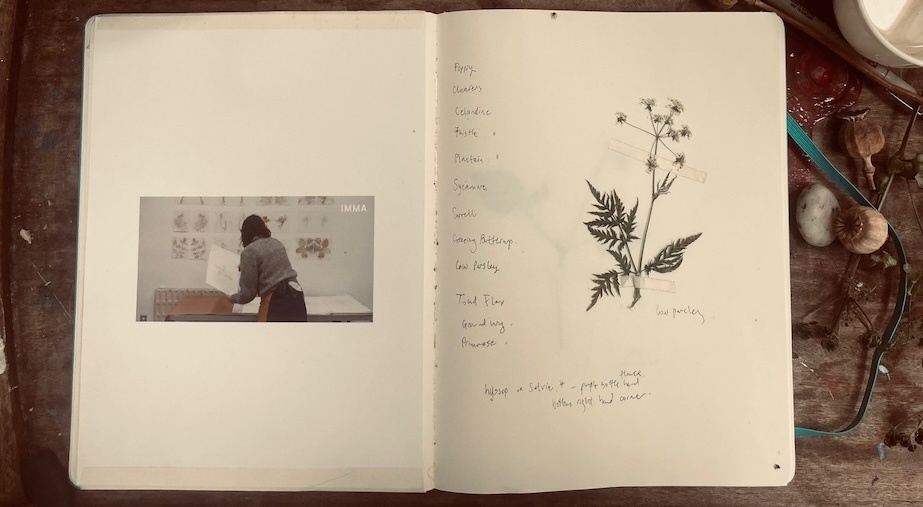 IMMA
Poppy
Cleavers
Celandine
Thistle
Plantain
Sycamore
Sorrell
Creeping Buttercup.
Cow Parsley
Toad Flax
Ground Ivy.
Primrose
Cow parsley
hyssop or Salvia * - purple
bottom right hand corner.